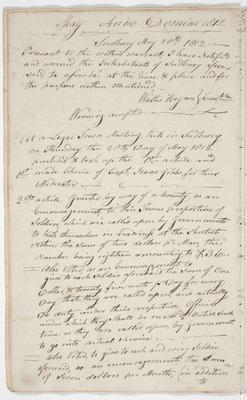 May Anno Domini 1812
Sudbury May 20th 1812
Pursuant to the within warrant I have Notified
and warned the Inhabitants of Sudbury afore
said to assemble at the time & place and for
the purposes within Mentioned
Walter Haynes
Warning accepted
At a Legal Town Meeting held in Sudbury
on Thursday the 28th Day of May 1812
proceeded & took up the 1st article and
1st made Choice of Capt. Isaac for their
Moderator
2nd article Granted by way of a bounty, as an
Encouragement to this Towns proportion of
Soldiers which are called upon by Government
to hold themselves in readiness at the Shortest
Notice the Sum of two dollars pr Man the
Number being eighteen amounting to $36
Also Voted as an encouragement to
give to each Soldier afore Said the Sum of One
Dollar & twenty five cents pr Day for every
Day that they are called upon and actually
Do duty under their respective officers
under which they shall be
time as they are called upon by Government
to go into actual Service
Also Voted, to give to each and every Soldier
aforesaid, as an encouragement, the Sum
of Seven dollars per Month, (in addition
to